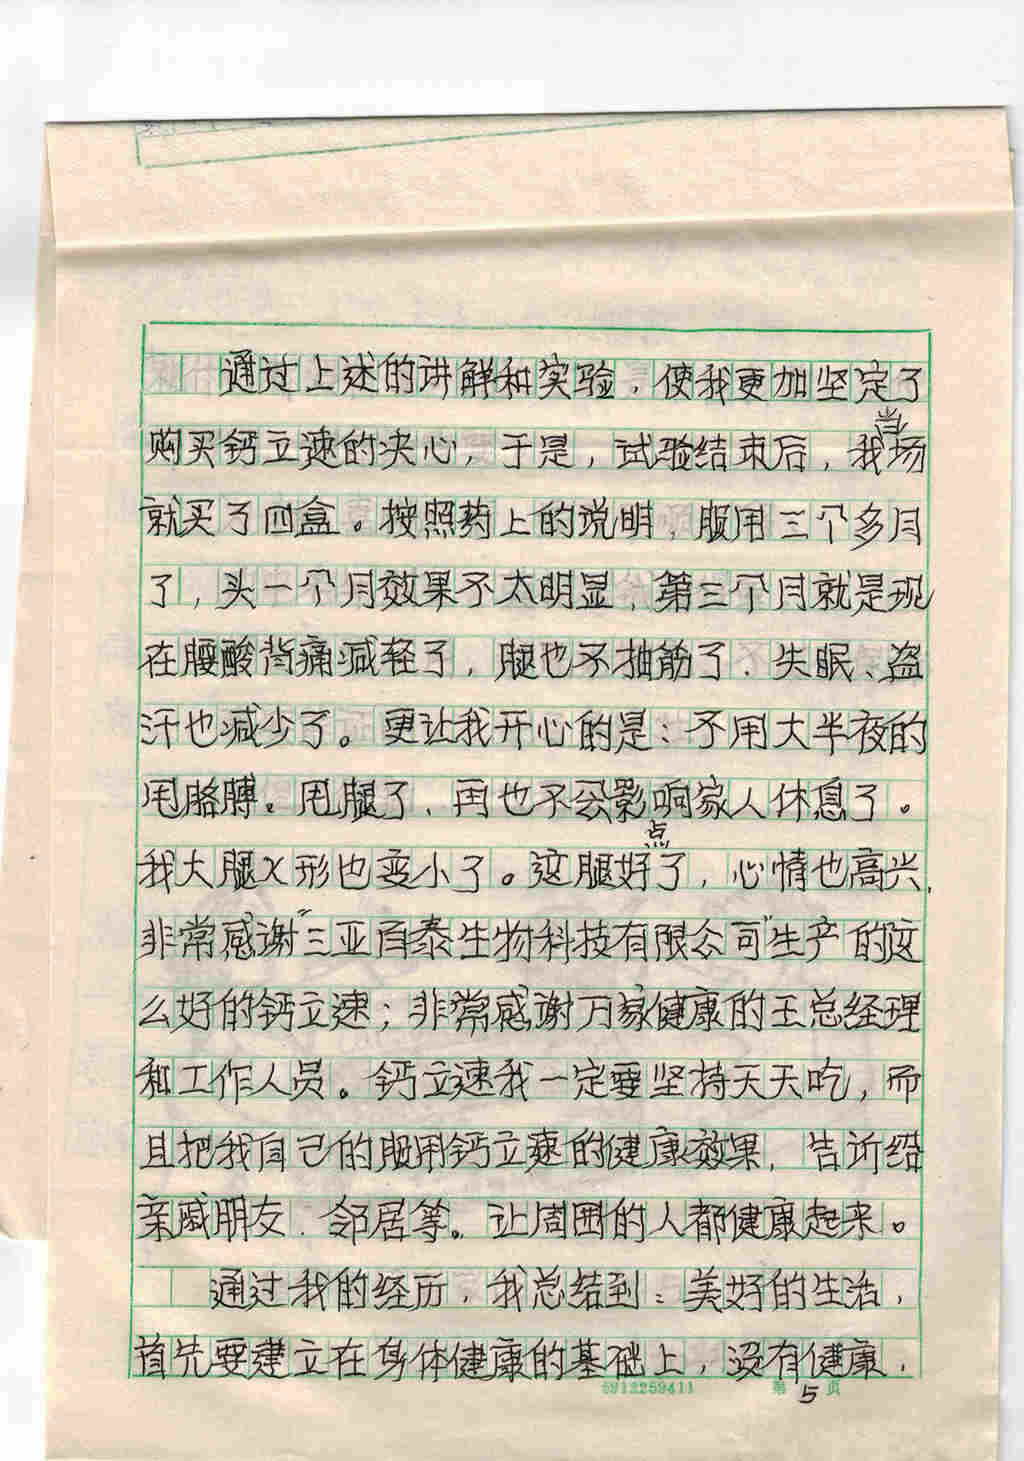 通过上述的讲解和实验，使我更加坚定了
购买钙立速的决心，于是，试验结束后，我当场
就买了四盒。按照药上的说明，服用三个多月
了，头一个月效果不太明显，第三个月就是现
在腰酸背痛减轻了，腿也不抽筋了、失眠、盗
汗也减少了。更让我开心的是：不用大半夜的
甩胳膊。甩腿了，再也不会影响家人休息了。
我大腿X形也变小了。这腿好点了，心情也高兴，
非常感谢“三亚百泰生物科技有限公司”生产的这
么好的钙立速；非常感谢万家健康的王总经理
和工作人员。钙立速我一定要坚持天天吃，而
且把我自己的服用钙立速的健康效果，告诉给
亲戚朋友、邻居等。让周围的人都健康起来。
通过我的经历，我总结到：美好的生活，
首先要建立在身体健康的基础上，没有健康，
6912259411 第5页